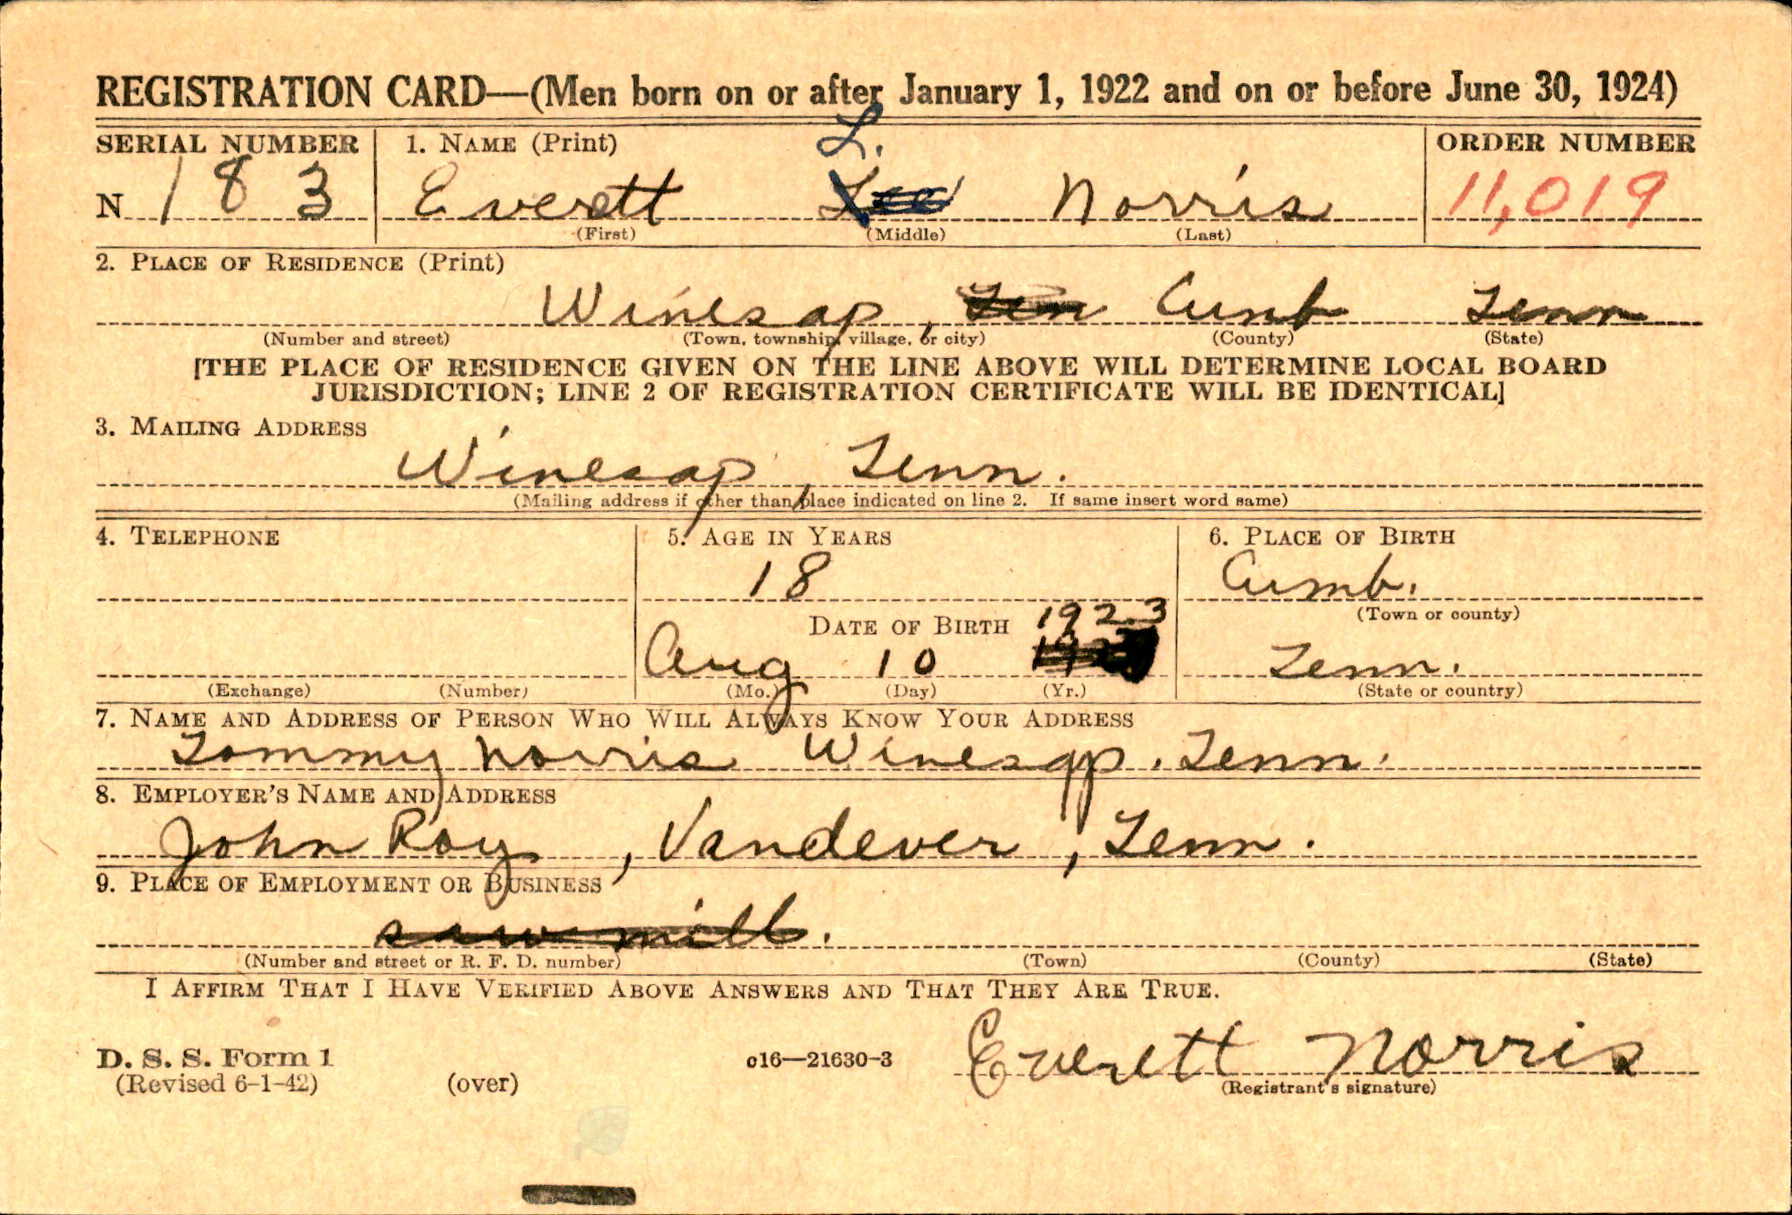 REGISTRATION CARD—(Men born on or after January 1, 1922 and on or before June 30, 1924)
SERIAL NUMBER 1. NAME (Print) L. ORDER NUMBER
N 183 Everett Lee Norris 11,019
(First) (Middle) (Last)
2. PLACE OF RESIDENCE (Print)
Winesap, Ten Cumb Tenn
(Number and street) (Town, township, village, or city) (County) (State)
[THE PLACE OF RESIDENCE GIVEN ON THE LINE ABOVE WILL DETERMINE LOCAL BOARD
JURISDICTION; LINE 2 OF REGISTRATION CERTIFICATE WILL BE IDENTICAL]
3. MAILING ADDRESS
Winesap, Tenn.
(Mailing address if other than place indicated on line 2. If same insert word same)
4. TELEPHONE 5. AGE IN YEARS 6. PLACE OF BIRTH
18 Cumb.
(Town or county)
DATE OF BIRTH 1923
Aug 10 Tenn.
(Exchange) (Number) (Mo.) (Day) (Yr.) (State or country)
7. NAME AND ADDRESS OF PERSON WHO WILL ALWAYS KNOW YOUR ADDRESS
Tommy Norris Winesap. Tenn.
8. EMPLOYER'S NAME AND ADDRESS
John Roy, Vandever, Tenn.
9. PLACE OF EMPLOYMENT OR BUSINESS
saw mill.
(Number and street or R. F. D. number) (Town) (County) (State)
I AFFIRM THAT I HAVE VERIFIED ABOVE ANSWERS AND THAT THEY ARE TRUE.
D. S. S. Form 1 c16—21630-3 Everett Norris
(Revised 6-1-42) (over) (Registrant's signature)